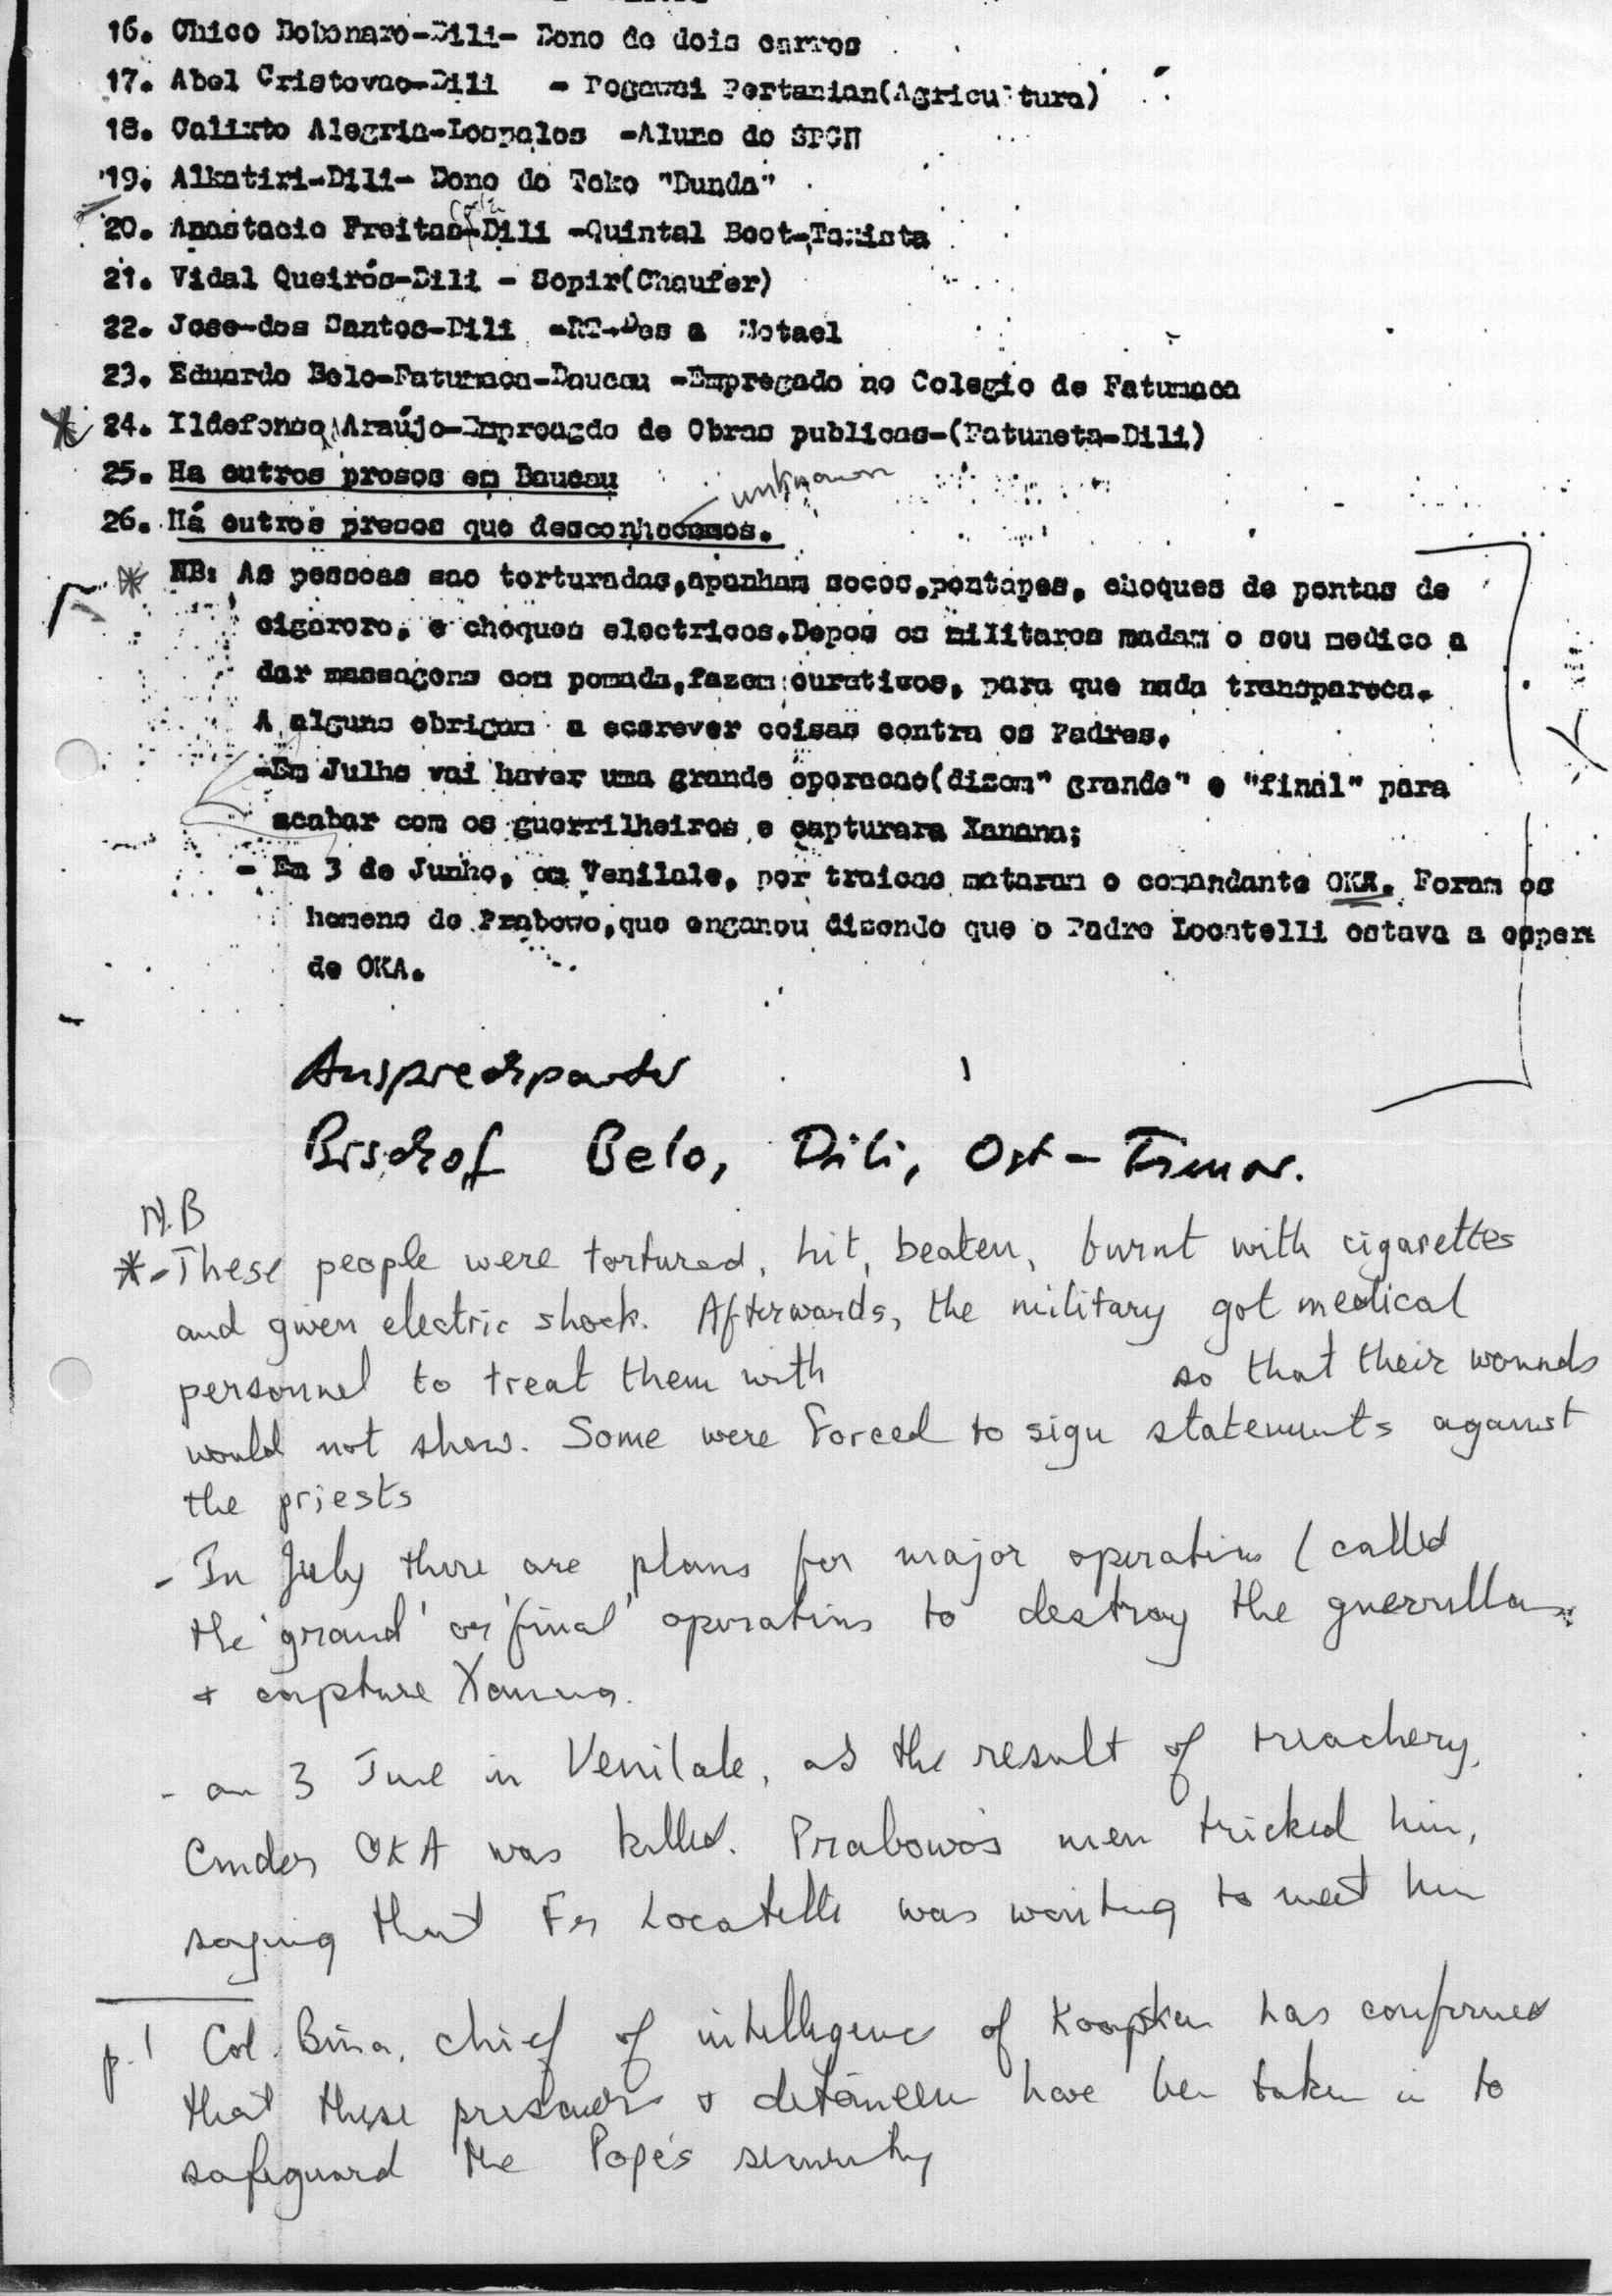 16. Chico Bobonaro-Dili- Dono de dois carros
17. Abel Cristovao-Dili - Pegawai Pertanian(Agricultura)
18. Calixto Alegria-Lospalos -Aluno do SPGN
19. Alkatiri-Dili- Dono do Toko "Dunda"
20. Anastacio Freitas-Dili -Quintal Boot-Taxista
21. Vidal Queirós-Dili - Sopir(Chaufer)
22. Jose-dos Santos-Dili a Motael
23. Eduardo Belo-Fatumaca-Baucau -Empregado no Colegio de Fatumaca
24. Ildefonso Araújo-Emproagdo de Obras publicas-(Fatuneta-Dili)
25. Ha outros presos em Baucau
unknown
26. Há outros presos que desconhecemos.
* NB: As pessoas sao torturadas,apanham socos,pontapes, choques de pontas de
cigarro, e choques electricos.Depos os militares madam o seu medico a
dar massagens com pomada,fazem curativos, para que nada transpareca.
A alguns obrigam a escrever coisas contra os Padres.
-Em Julho vai haver uma grande operacao(dizem" grande" e "final" para
acabar com os guerrilheiros e capturara Xanana;
- Em 3 de Junho, em Venilale, por traicao mataram o comandante OKA. Foram os
homens de Prabowo,que enganou dizendo que o Padre Locatelli estava a esper
de OKA.
Ansprechpartner
Bischof Belo, Dili, Ost-Timor.
N.B
*-These people were tortured, hit, beaten, burnt with cigarettes
and given electric shock. Afterwards, the military got medical
personnel to treat them with so that their wounds
would not show. Some were forced to sign statements against
the priests
- In July there are plans for major operations (called
the 'grand' or 'final' operations to destroy the guerrillas
+ capture Xanana.
- on 3 June in Venilale, as the result of treachery,
Cmder OKA was killed. Prabowo's men tricked him,
saying that Fr Locatelli was waiting to meet him
p.1 Col. Bina, chief of intelligence of Koopskam has confirmed
that these prisoners + detainees have been taken in to
safeguard the Pope's security